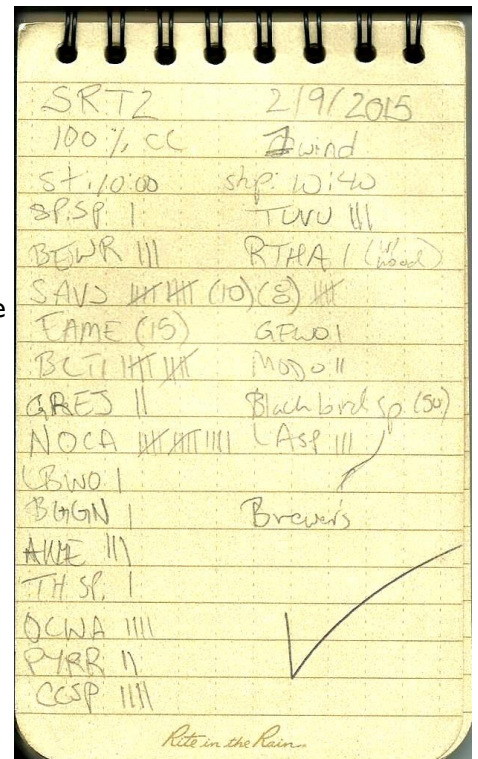 SRT2 2/9/2015
100% CC wind
St. 10:00 stp: 10:40
SP.SP. I TUVU III
BEWR III RTHA I
SAVS 卌 卌 (10)(8) 卌
EAME (15) GFWO I
BCTI 卌 卌 MODO II
GREJ II Blackbird sp. (50)
NOCA 卌 卌 IIII LASP III
LBWO I
BGGN I Brewer's
III
TH SP. I
OCWA IIII
PYRR II
CCSP IIII
Rite in the Rain
e